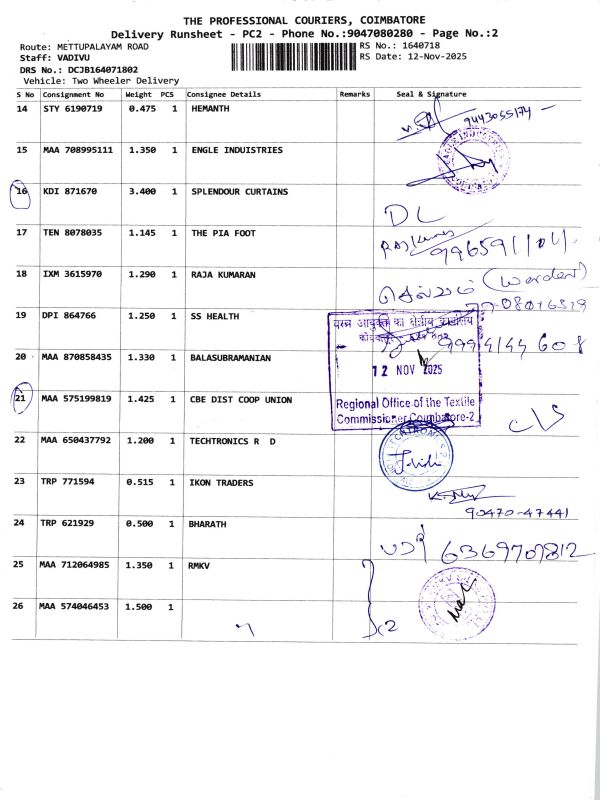 THE PROFESSIONAL COURIERS, COIMBATORE
Delivery Runsheet - PC2 - Phone No.:9047080280 - Page No.:2
Route: METTUPALAYAM ROAD
RS No.: 1640718
Staff: VADIVU
RS Date: 12-Nov-2025
DRS No.: DCJB164071802
Vehicle: Two Wheeler Delivery
S No Consignment No Weight PCS Consignee Details Remarks Seal & Signature
14 STY 6190719 0.475 1 HEMANTH
9443055174
15 MAA 708995111 1.350 1 ENGLE INDUISTRIES
16 KDI 871670 3.400 1 SPLENDOUR CURTAINS
DL
17 TEN 8078035 1.145 1 THE PIA FOOT
18 IXM 3615970 1.290 1 RAJA KUMARAN
செல்வம் (Warden)
19 DPI 864766 1.250 1 SS HEALTH
वस्त्र आयुक्त का क्षेत्रीय कार्यालय
20 MAA 870858435 1.330 1 BALASUBRAMANIAN
12 NOV 2025
21 MAA 575199819 1.425 1 CBE DIST COOP UNION
Regional Office of the Textile
Commissioner Coimbatore-2
22 MAA 650437792 1.200 1 TECHTRONICS R D
23 TRP 771594 0.515 1 IKON TRADERS
90470-47441
24 TRP 621929 0.500 1 BHARATH
25 MAA 712064985 1.350 1 RMKV
26 MAA 574046453 1.500 1